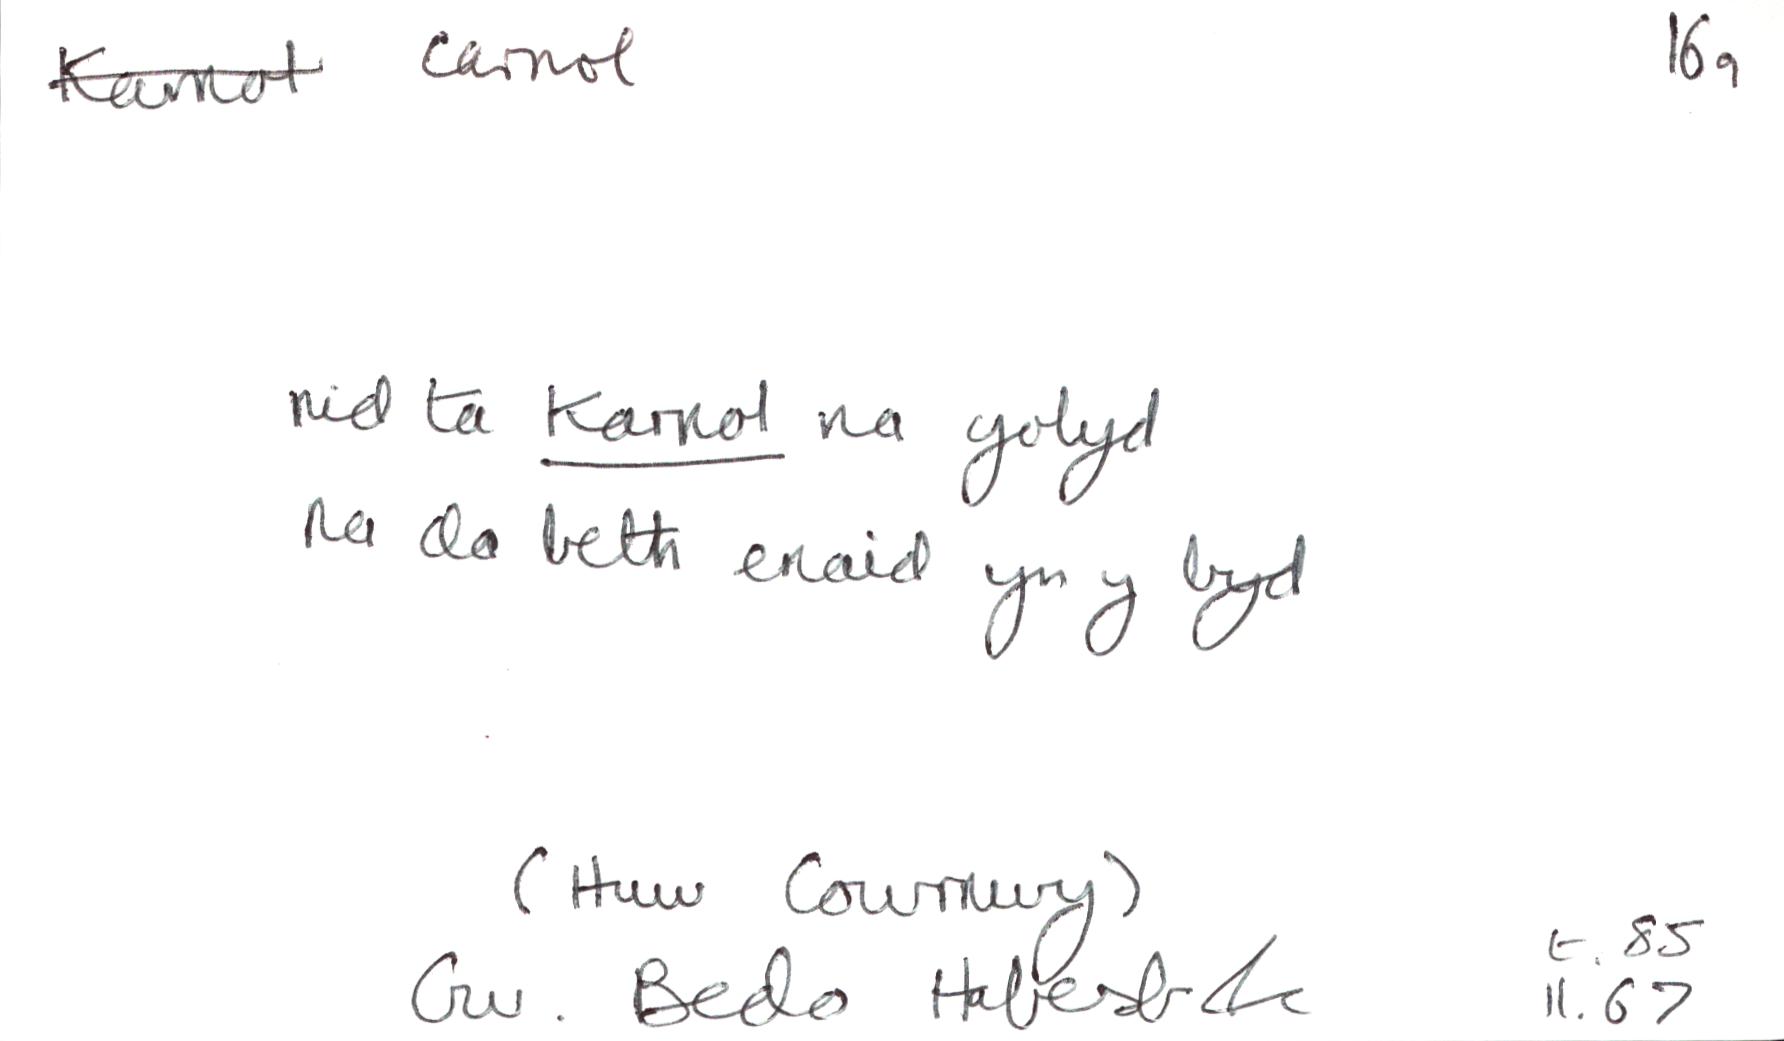 Karnol carnol 16g
nid ta Karnol na golyd
na da beth enaid yn y byd
(Huw Cowrnwy)
Gw. Bedo Hafesb
t. 85
ll. 67